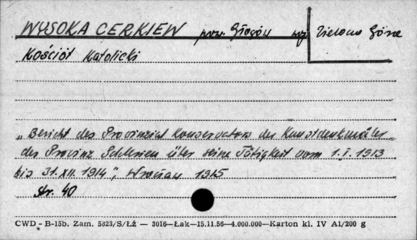 WYSOKA CERKIEW pow. Głogów woj. Zielona Góra
Kościół Katolicki
„Bericht des Provinzial Konservators der Kunstdenkmäler
der Provinz Schlesien über seine Tätigkeit vom 1.I.1913
bis 31.XII.1914", Wrocław 1915
str. 40
CWD - B-15b. Zam. 5823/S/Łż — 3016—Łak—15.11.56—4.000.000—Karton kl. IV A1/200 g